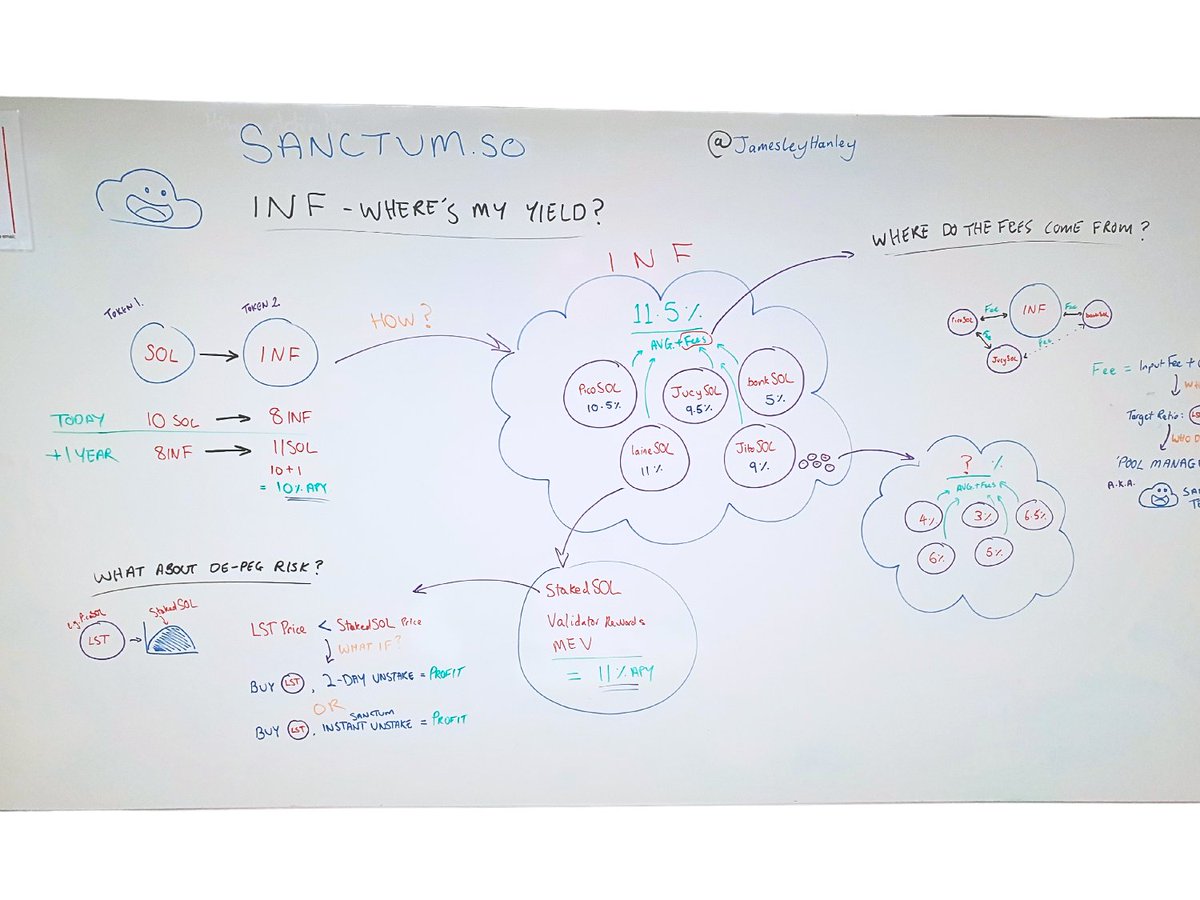 SANCTUM.SO
@JamesleyHanley
INF - WHERE'S MY YIELD?
TOKEN 1.
TOKEN 2
SOL
INF
HOW?
TODAY
10 SOL
8 INF
+1 YEAR
8INF
11SOL
10+1
= 10% APY
INF
11.5%
AVG. + Fees
PicoSOL
10.5%
JucySOL
9.5%
bonkSOL
5%
laineSOL
11%
JitoSOL
9%
WHERE DO THE FEES COME FROM?
INF
Fee
Fee
PicoSOL
bonkSOL
JucySOL
Fee
Fee = Input Fee +
Target Ratio:
WHO D
'POOL MANAG
A.K.A.
SA
? %
AVG. + Fees
4%
3%
6.5%
6%
5%
WHAT ABOUT DE-PEG RISK?
e.g. PicoSOL
StakedSOL
LST
LST Price < StakedSOL Price
WHAT IF?
BUY LST, 2-DAY UNSTAKE = PROFIT
OR
SANCTUM
BUY LST, INSTANT UNSTAKE = PROFIT
StakedSOL
Validator Rewards
MEV
= 11% APY